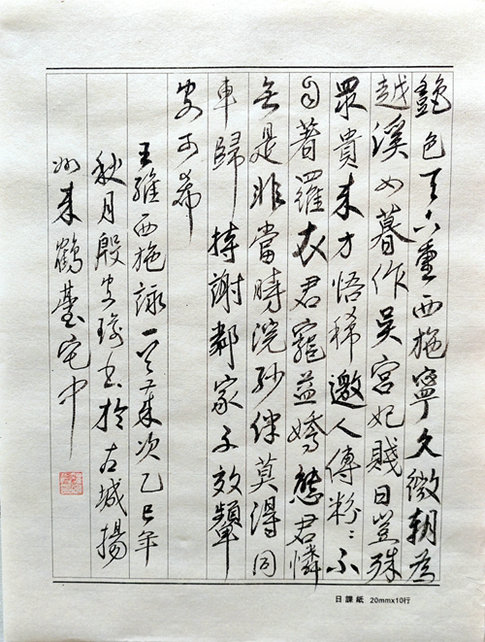 艷色天下重西施寧久微朝為
越溪女暮作吳宮妃賤日豈殊
眾貴來方悟稀邀人傅粉〻不
自著羅衣君寵益嬌態君憐
無是非當曉浣紗伴莫得同
車歸持謝鄰家子效顰
安可希
王維西施詠一首歲次乙巳年
秋月殷安書於古城揚
州來鶴臺宅中
日課紙 20mmx10行